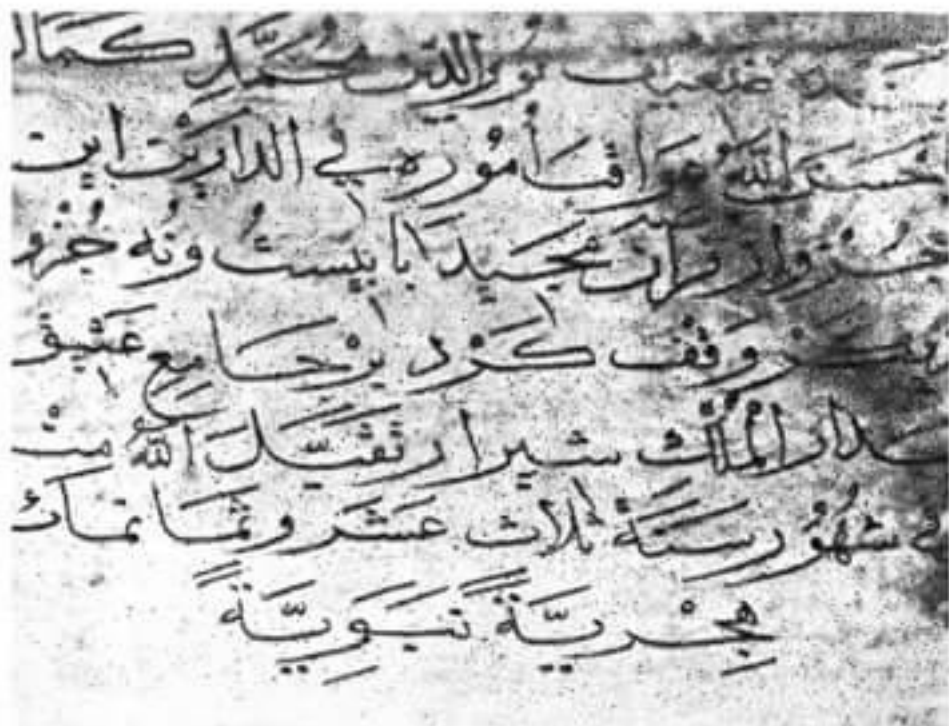 ضعیف نور الدین مُحَمَّد كمال
اَحْسَنَ اللّٰهُ عَوَاقبَ أُمُوره في الدارَيْن این
جُزْو از قرآن مجَید با بیستُ وَنُه جُزْو
دیگر وَقْف كَرْد بَرْ جَامِع عَتیق
بدار الْمُلْك شیراز تَقَبَّلَ اللّٰهُ منه
في شهُور سَنَةَ ثلاث عَشَر وثمَانمائه
هِجْرِیَّةً نَبَوِیَّةً